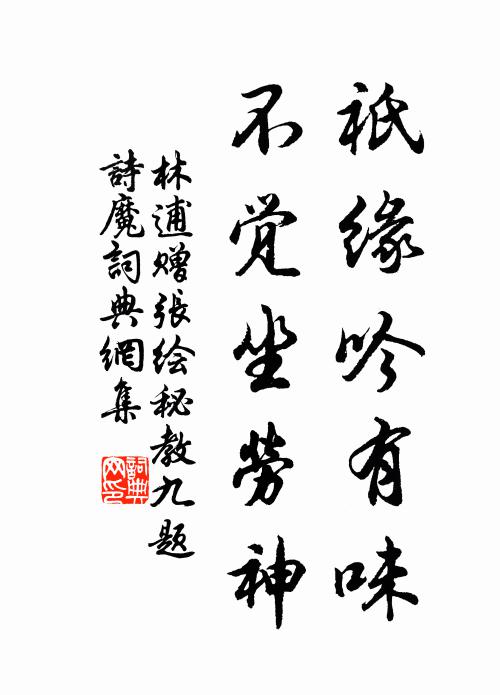 祇缘吟有味
不觉坐劳神
林逋赠張绘秘教九题
詩魔詞典網集
詞典
网印